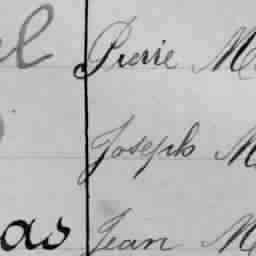 el Pierre M
Joseph M
as Jean M